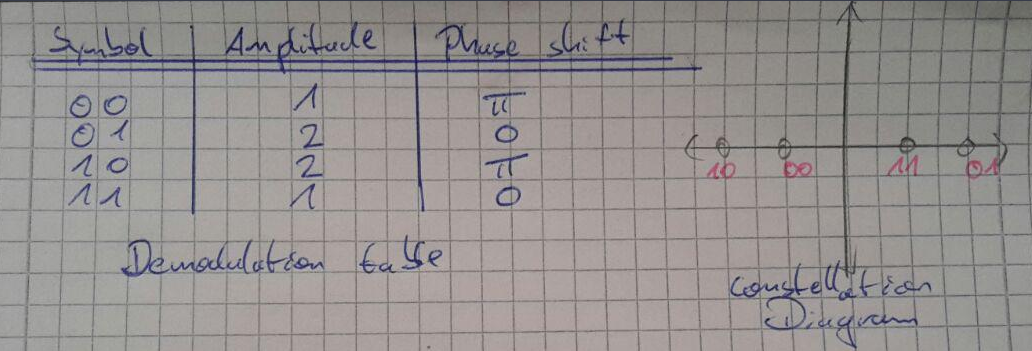 Symbol Amplitude Phase shift
00 1 π
01 2 0
10 2 π
11 1 0
10 00 11 01
Demodulation table
Constellation
Diagram